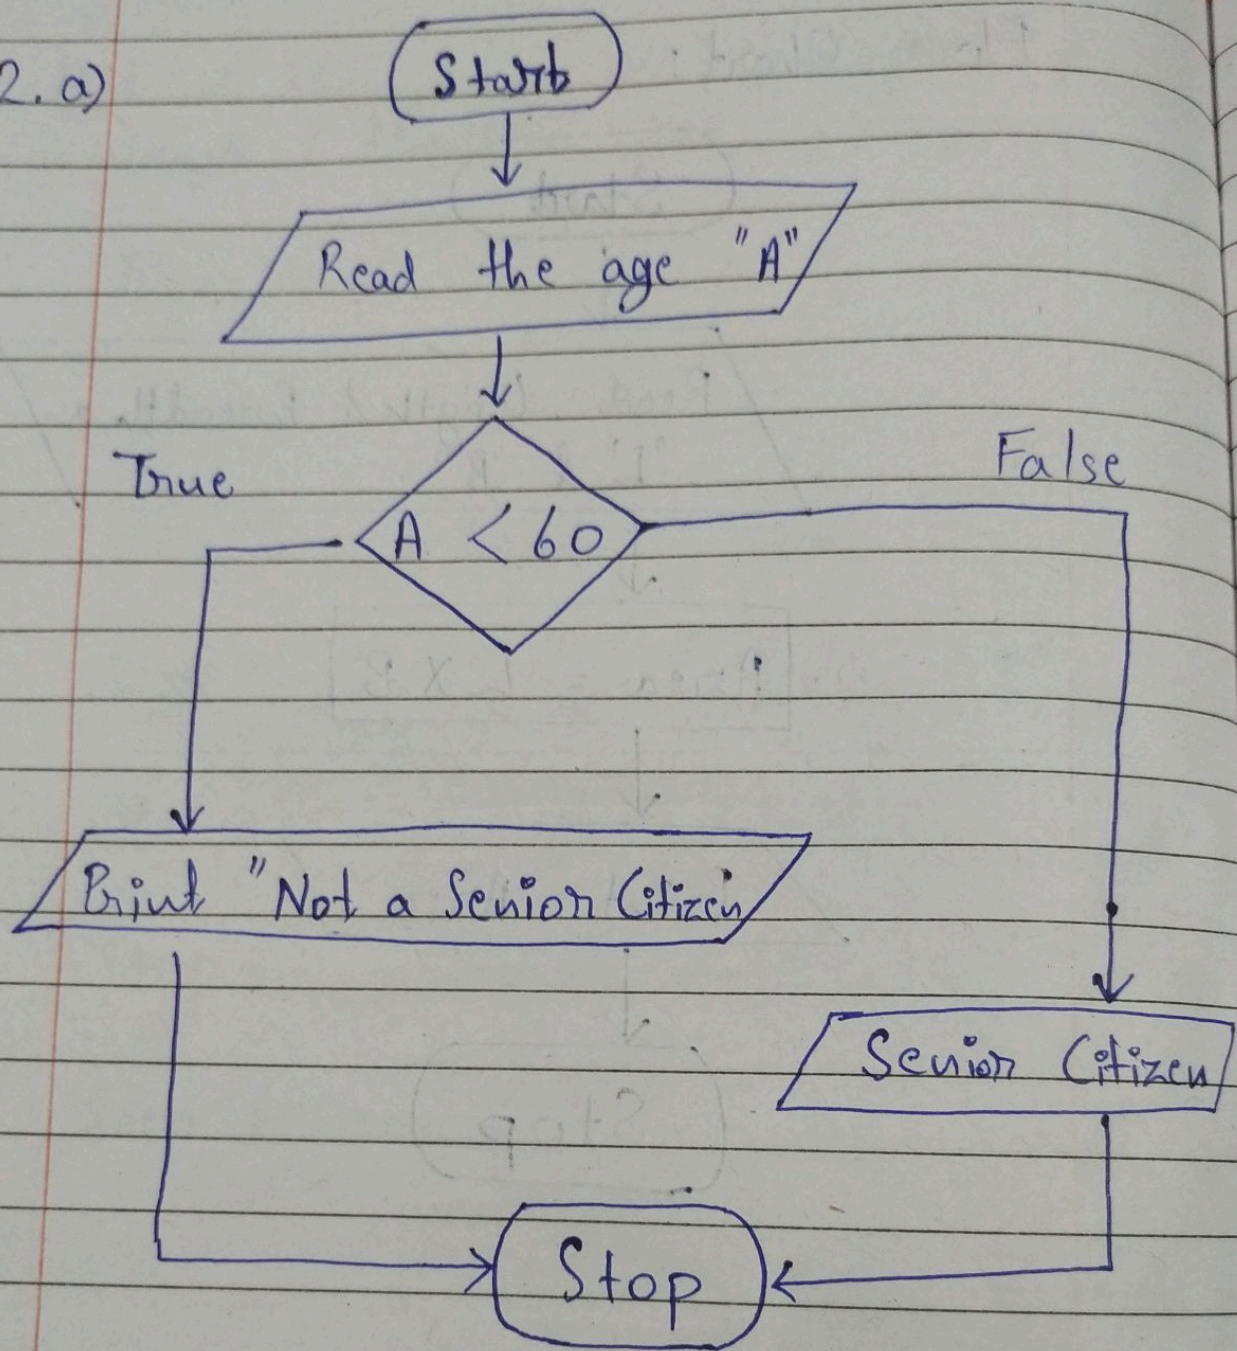 2. a)
Start
Read the age "A"
True
False
A < 60
Print "Not a Senior Citizen
Senior Citizen
Stop